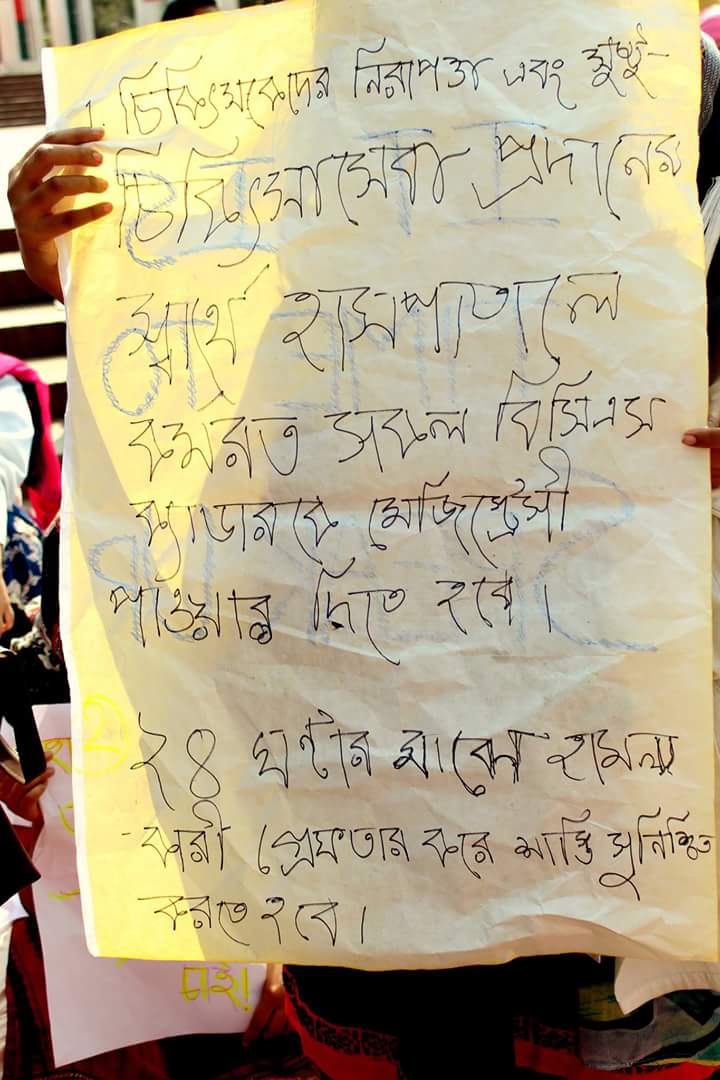 ১. চিকিৎসকদের নিরাপত্তা এবং সুষ্ঠু-
চিকিৎসাসেবা প্রদানের
স্বার্থে হাসপাতালে
কর্মরত সকল বিসিএস
ক্যাডারকে মেজিস্ট্রেসী
পাওয়ার দিতে হবে।
২ ২৪ ঘণ্টার মাঝে হামলা
-কারী গ্রেফতার করে শাস্তি সুনিশ্চিত
করতে হবে।
চাই!